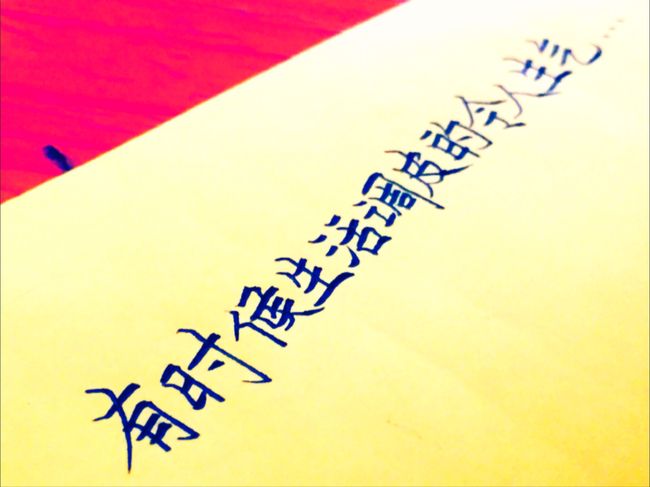 有时候生活调皮的令人生气...